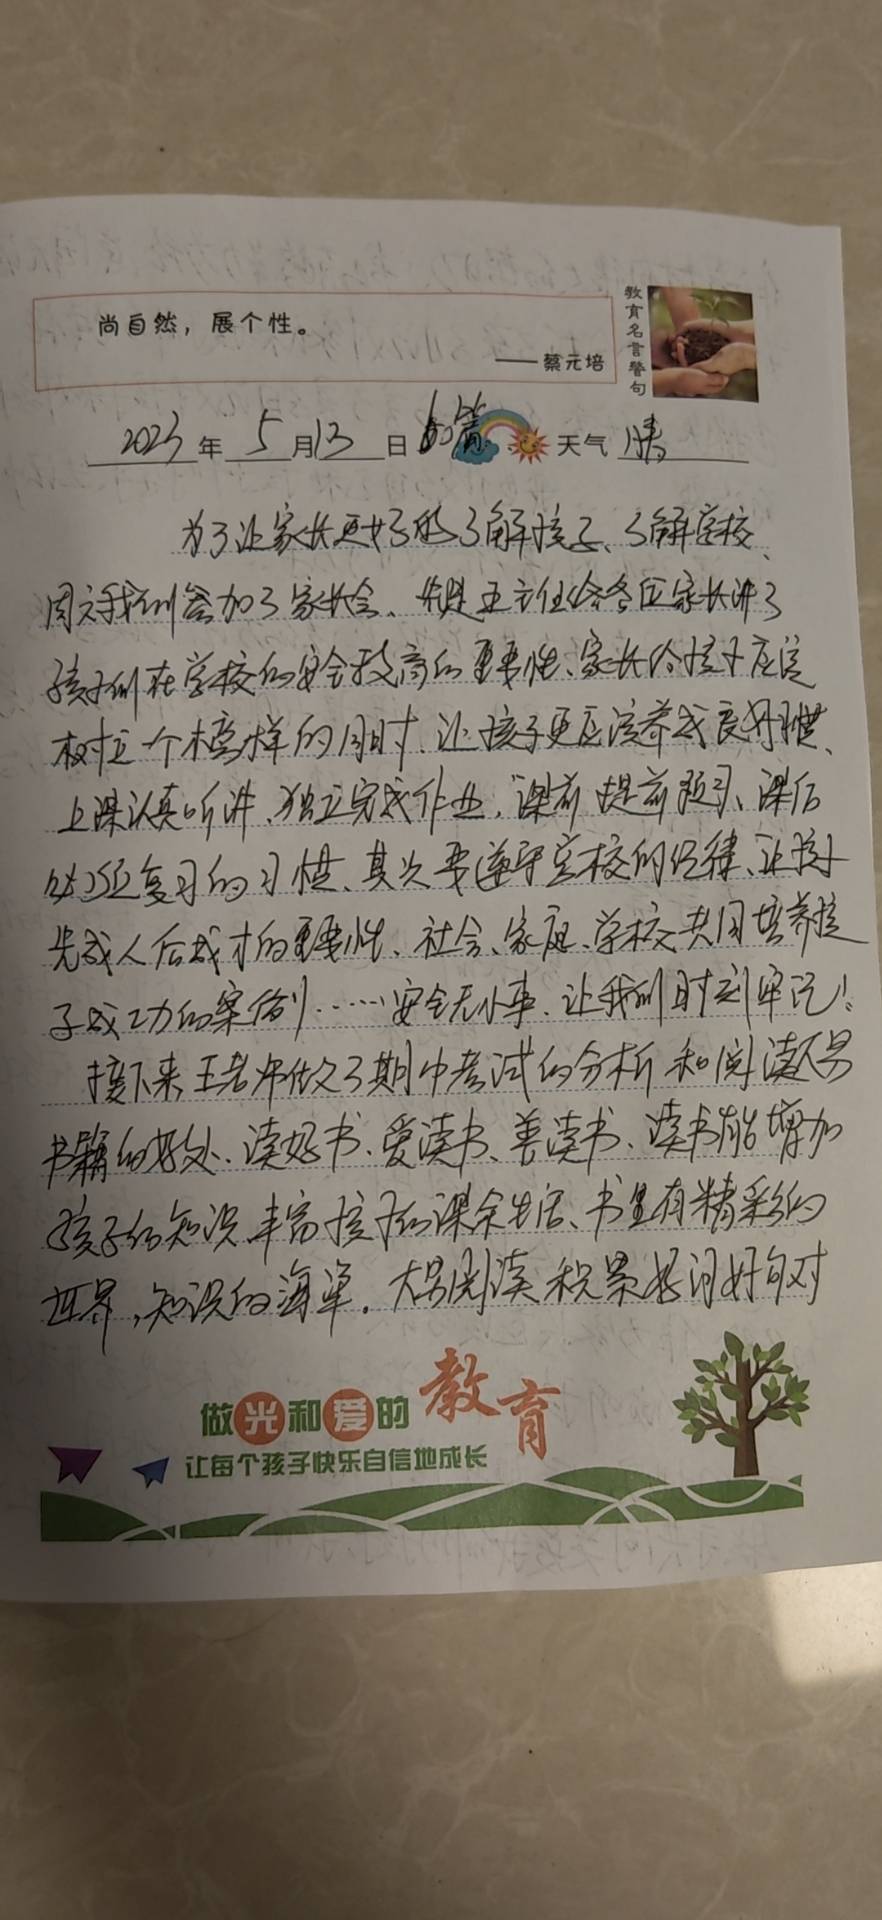 尚自然，展个性。
——蔡元培
教育名言警句
2023年5月13日 天气 晴
为了让家长更好的了解孩子、了解学校、
周六我们参加了家长会、先是王主任给各位家长讲了
孩子们在学校的安全教育的重要性、家长给孩子应该
树立一个榜样的同时、让孩子更应该养成良好习惯、
上课认真听讲、独立完成作业，课前提前预习、课后
必须复习的习惯、其次要遵守学校的纪律、让孩子
先成人后成才的重要性、社会、家庭、学校共同培养孩
子成功的案例……安全无小事、让我们时刻牢记！
接下来王老师做了期中考试的分析和阅读
书籍的好处、读好书、爱读书、善读书、读书能增加
孩子的知识 丰富孩子的课余生活、书里有精彩的
世界，知识的海 。大量阅读 积累好词好句对
做光和爱的教育
让每个孩子快乐自信地成长